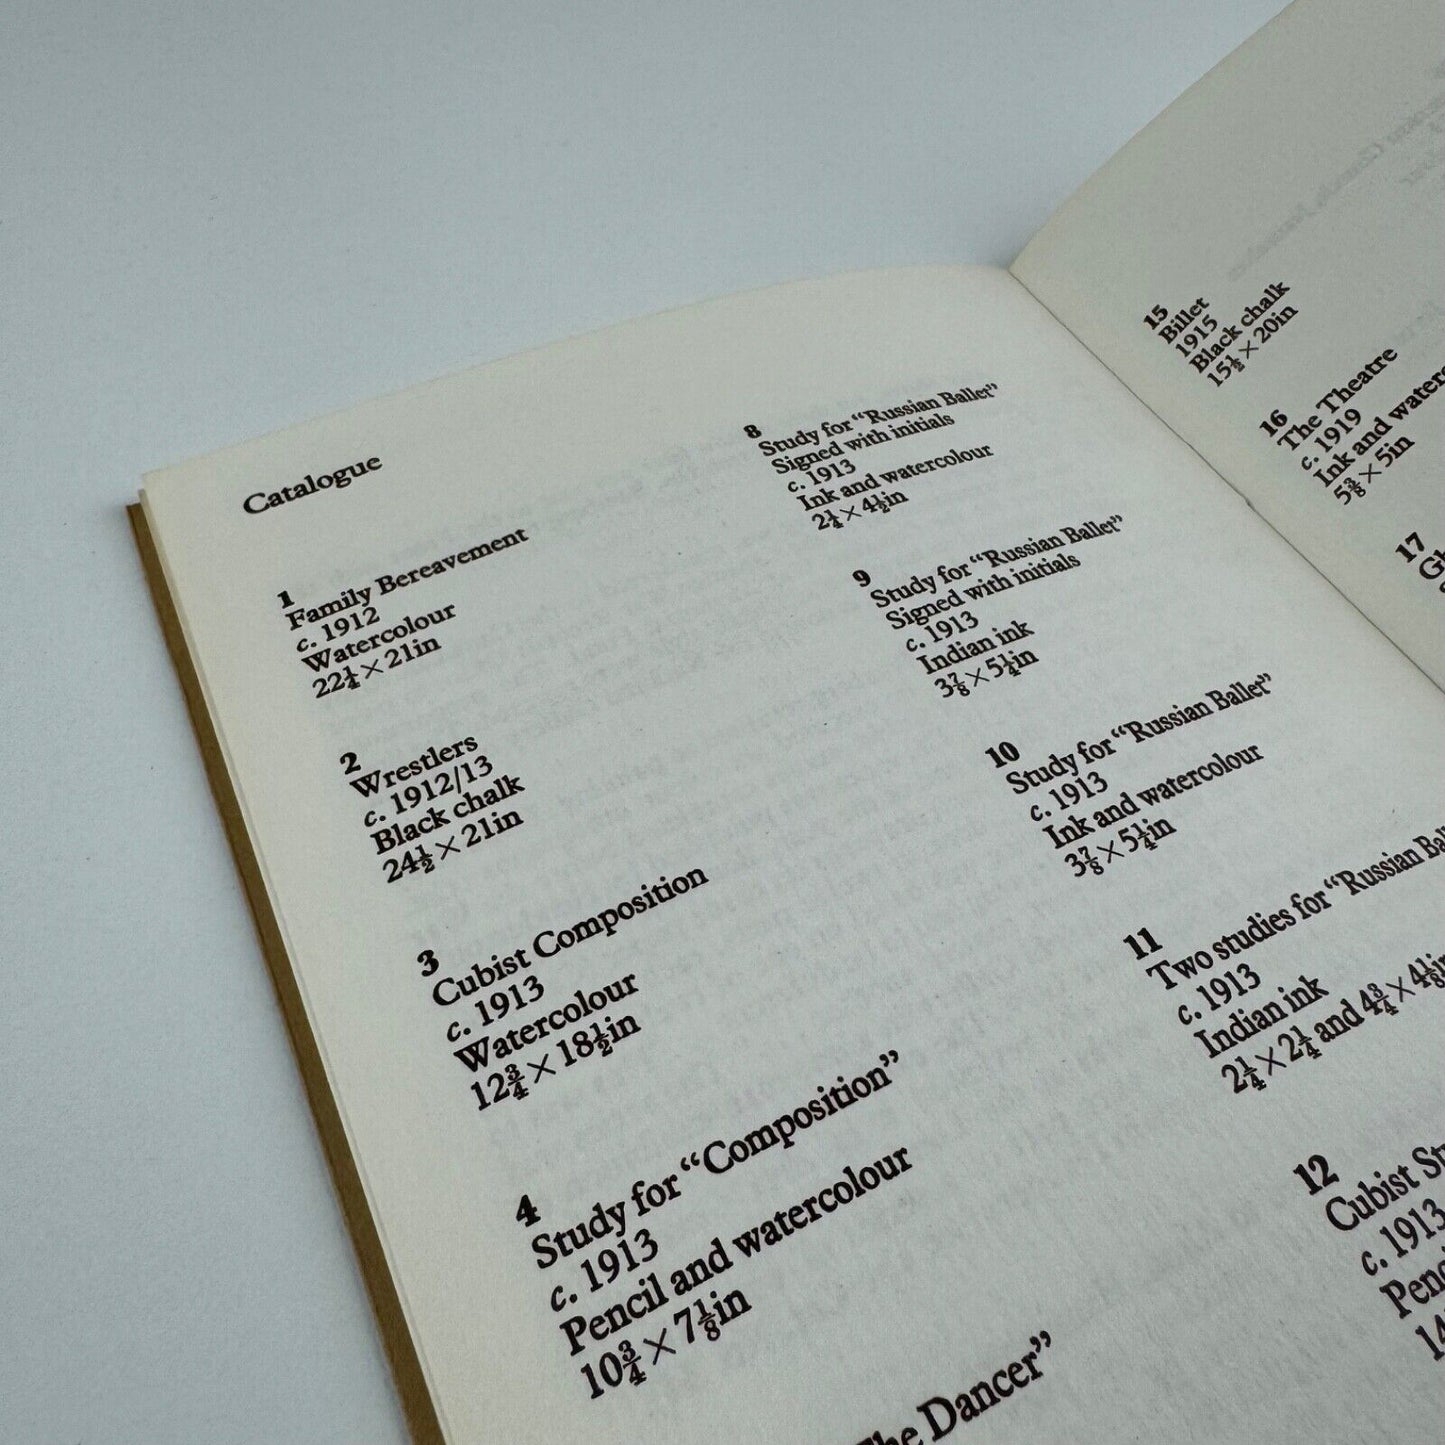 Catalogue
1
Family Bereavement
c. 1912
Watercolour
22¼ × 21in
2
Wrestlers
c. 1912/13
Black chalk
24½ × 21in
3
Cubist Composition
c. 1913
Watercolour
12¾ × 18½in
4
Study for “Composition”
c. 1913
Pencil and watercolour
10¾ × 7⅛in
The Dancer”
8
Study for “Russian Ballet”
Signed with initials
c. 1913
Ink and watercolour
2¼ × 4½in
9
Study for “Russian Ballet”
Signed with initials
c. 1913
Indian ink
3⅞ × 5¼in
10
Study for “Russian Ballet”
c. 1913
Ink and watercolour
3⅞ × 5¼in
11
Two studies for “Russian
c. 1913
Indian ink
2¼ × 2¼ and 4¾ × 4⅛in
12
Cubist
c. 1913
15
Billet
1915
Black chalk
15½ × 20in
16
The Theatre
c. 1919
Ink and
5⅜ × 5in
17